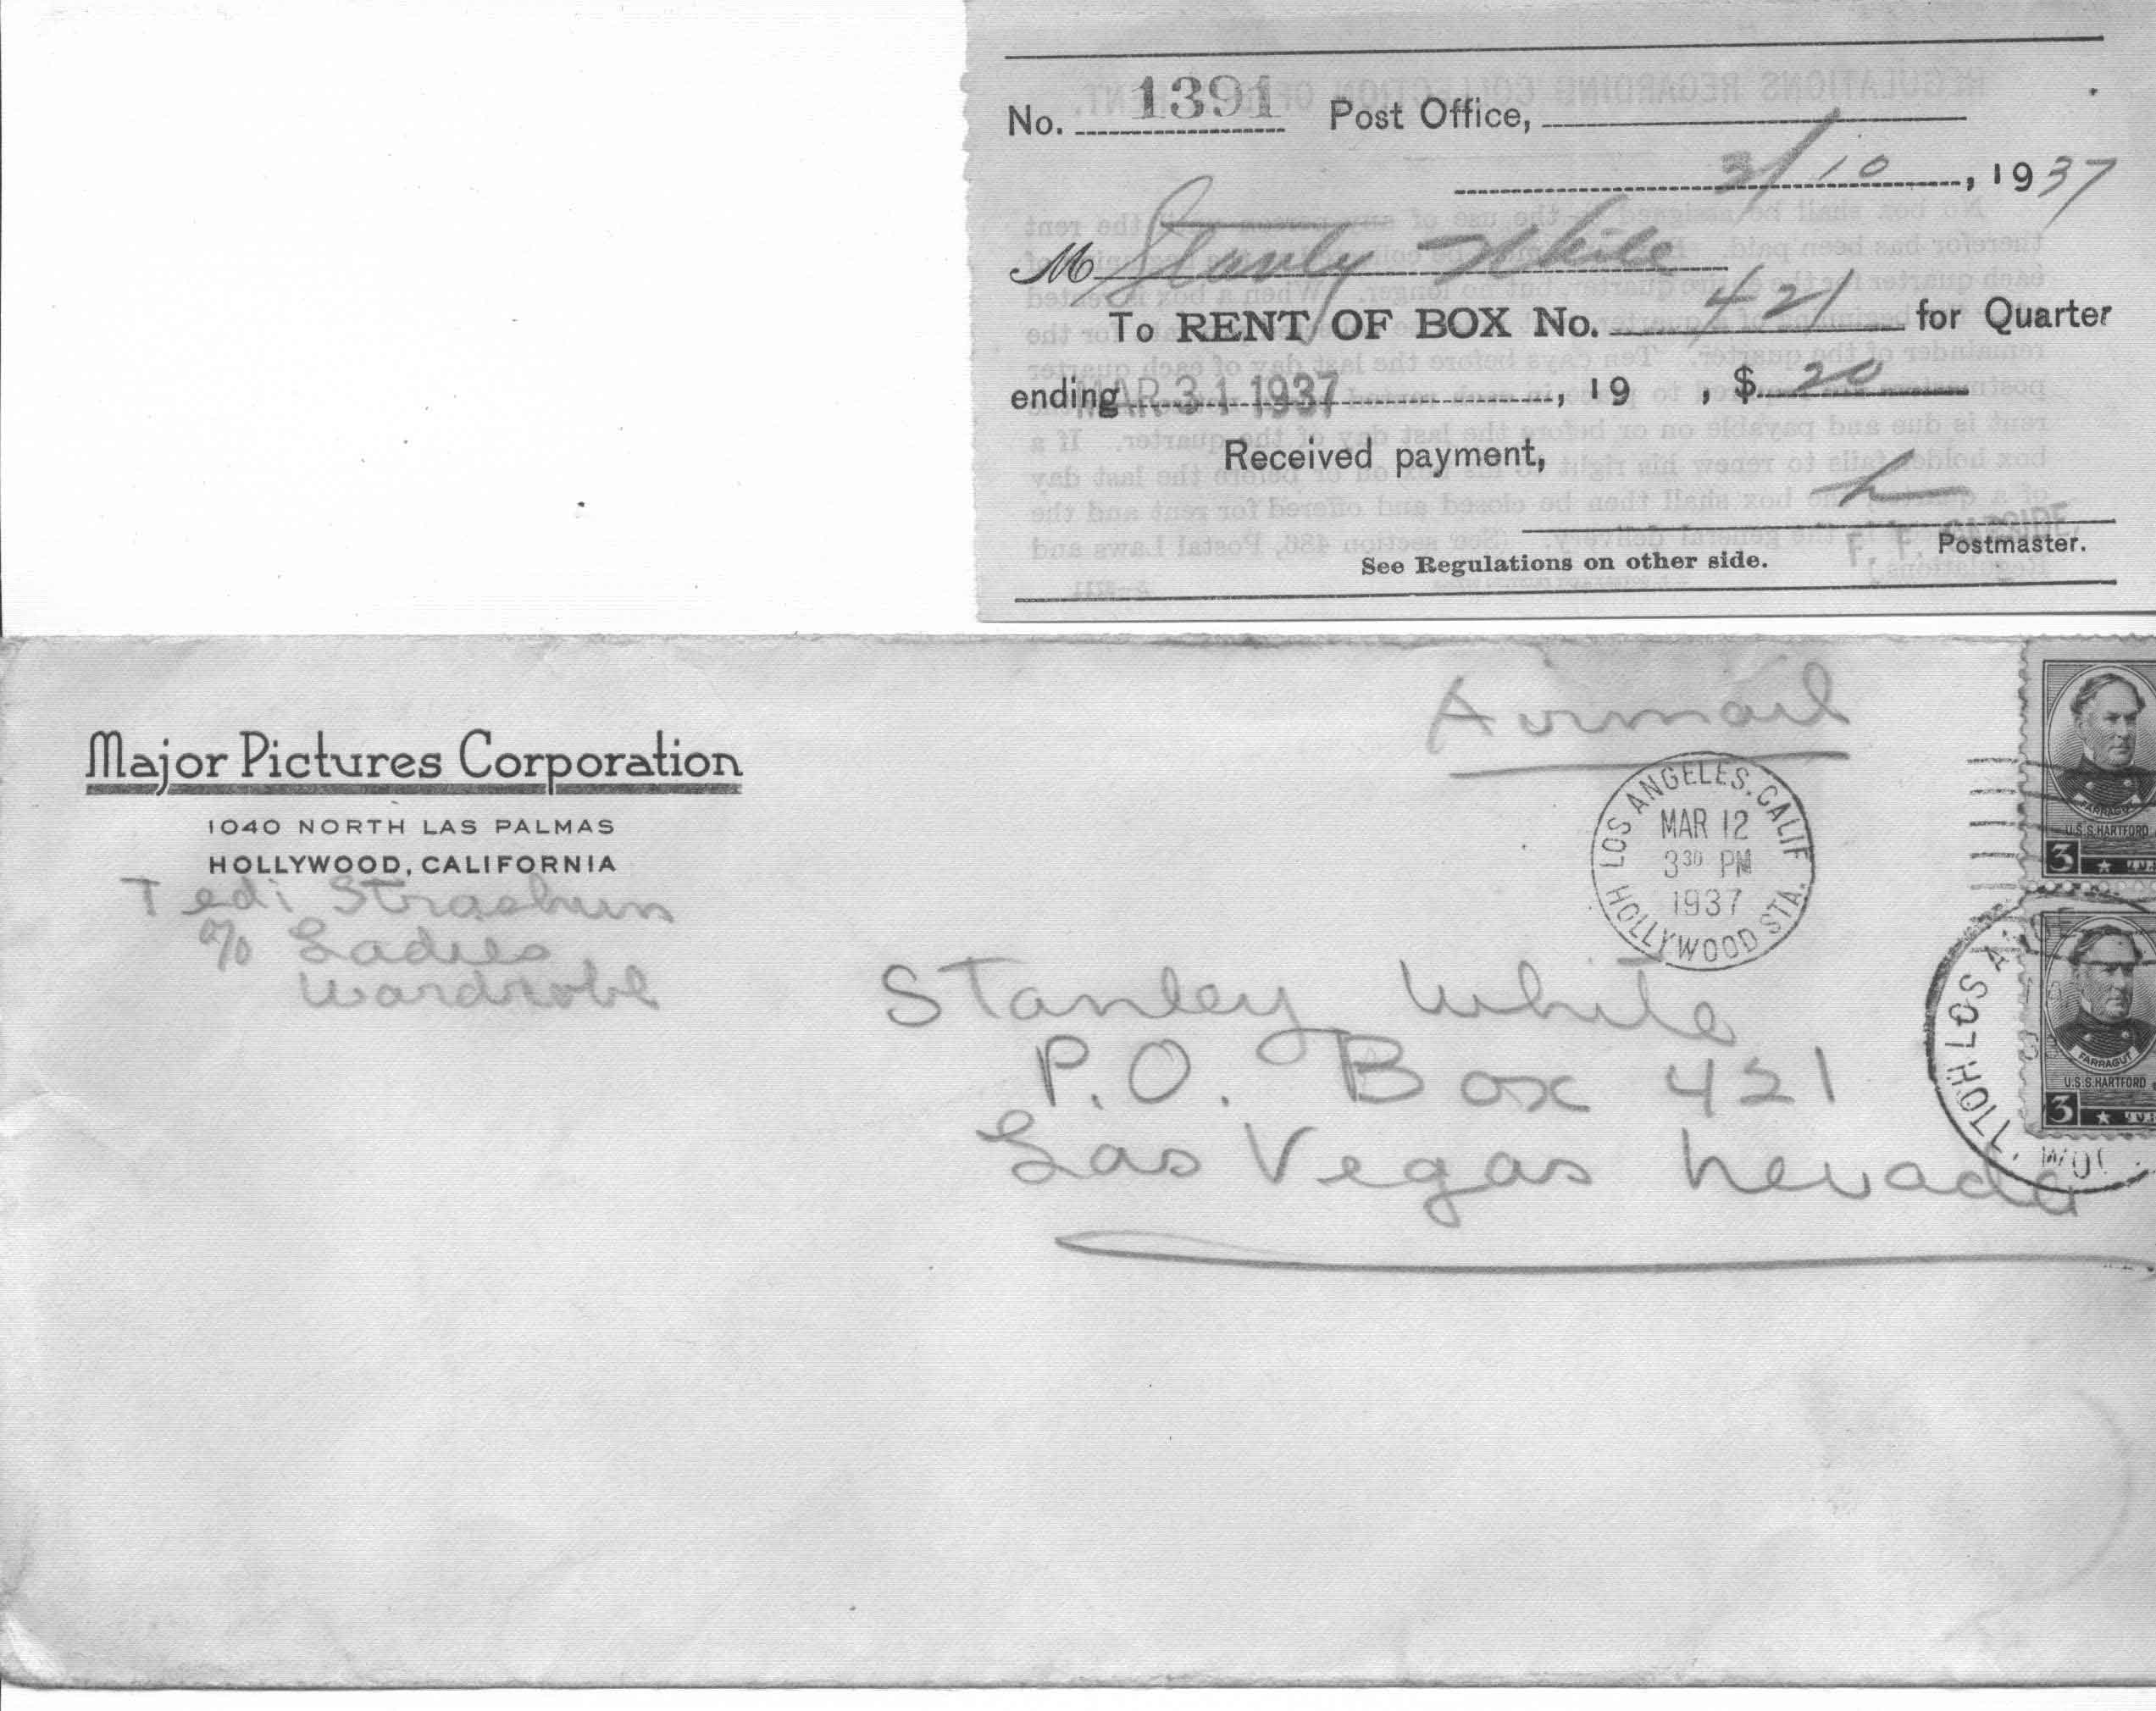 No. 1391 Post Office,
3/10, 1937
M Stanly White
To RENT OF BOX No. 421 for Quarter
ending MAR 31 1937, 19 , $ 20
Received payment,
F. F. GARSIDE,
Postmaster.
See Regulations on other side.
Airmail
Major Pictures Corporation
1040 NORTH LAS PALMAS
HOLLYWOOD, CALIFORNIA
Tedi
c/o Ladies
Wardrobe
LOS ANGELES, CALIF
MAR 12
3 30 PM
1937
HOLLYWOOD STA.
Stanley White
P.O. Box 421
Las Vegas Nevada
FARRAGUT
U.S.S. HARTFORD
3
FARRAGUT
U.S.S. HARTFORD
3
LOS
HOLLYWOO